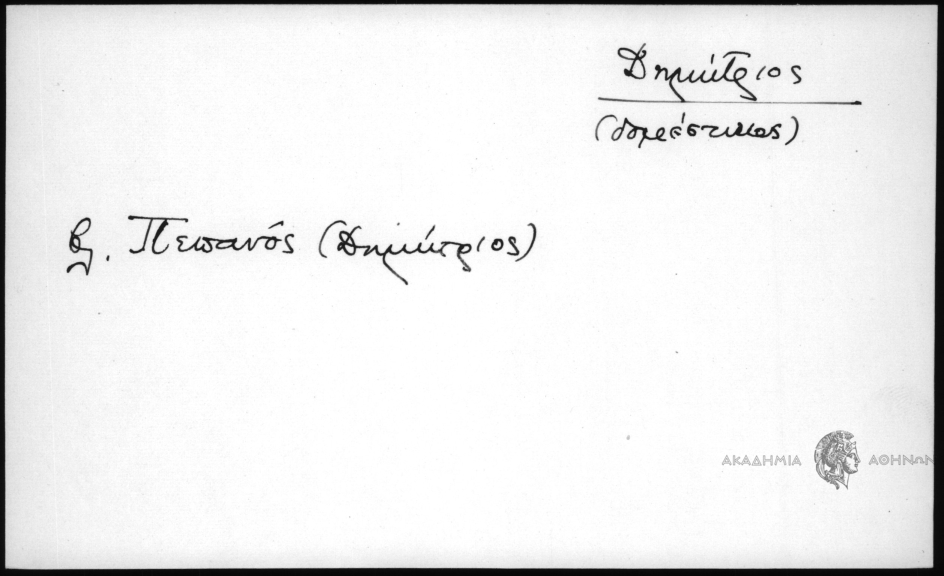 Δημήτριος
(δομέστικος)
βλ. Πεπανός (Δημήτριος)
ΑΚΑΔΗΜΙΑ ΑΘΗΝΩΝ